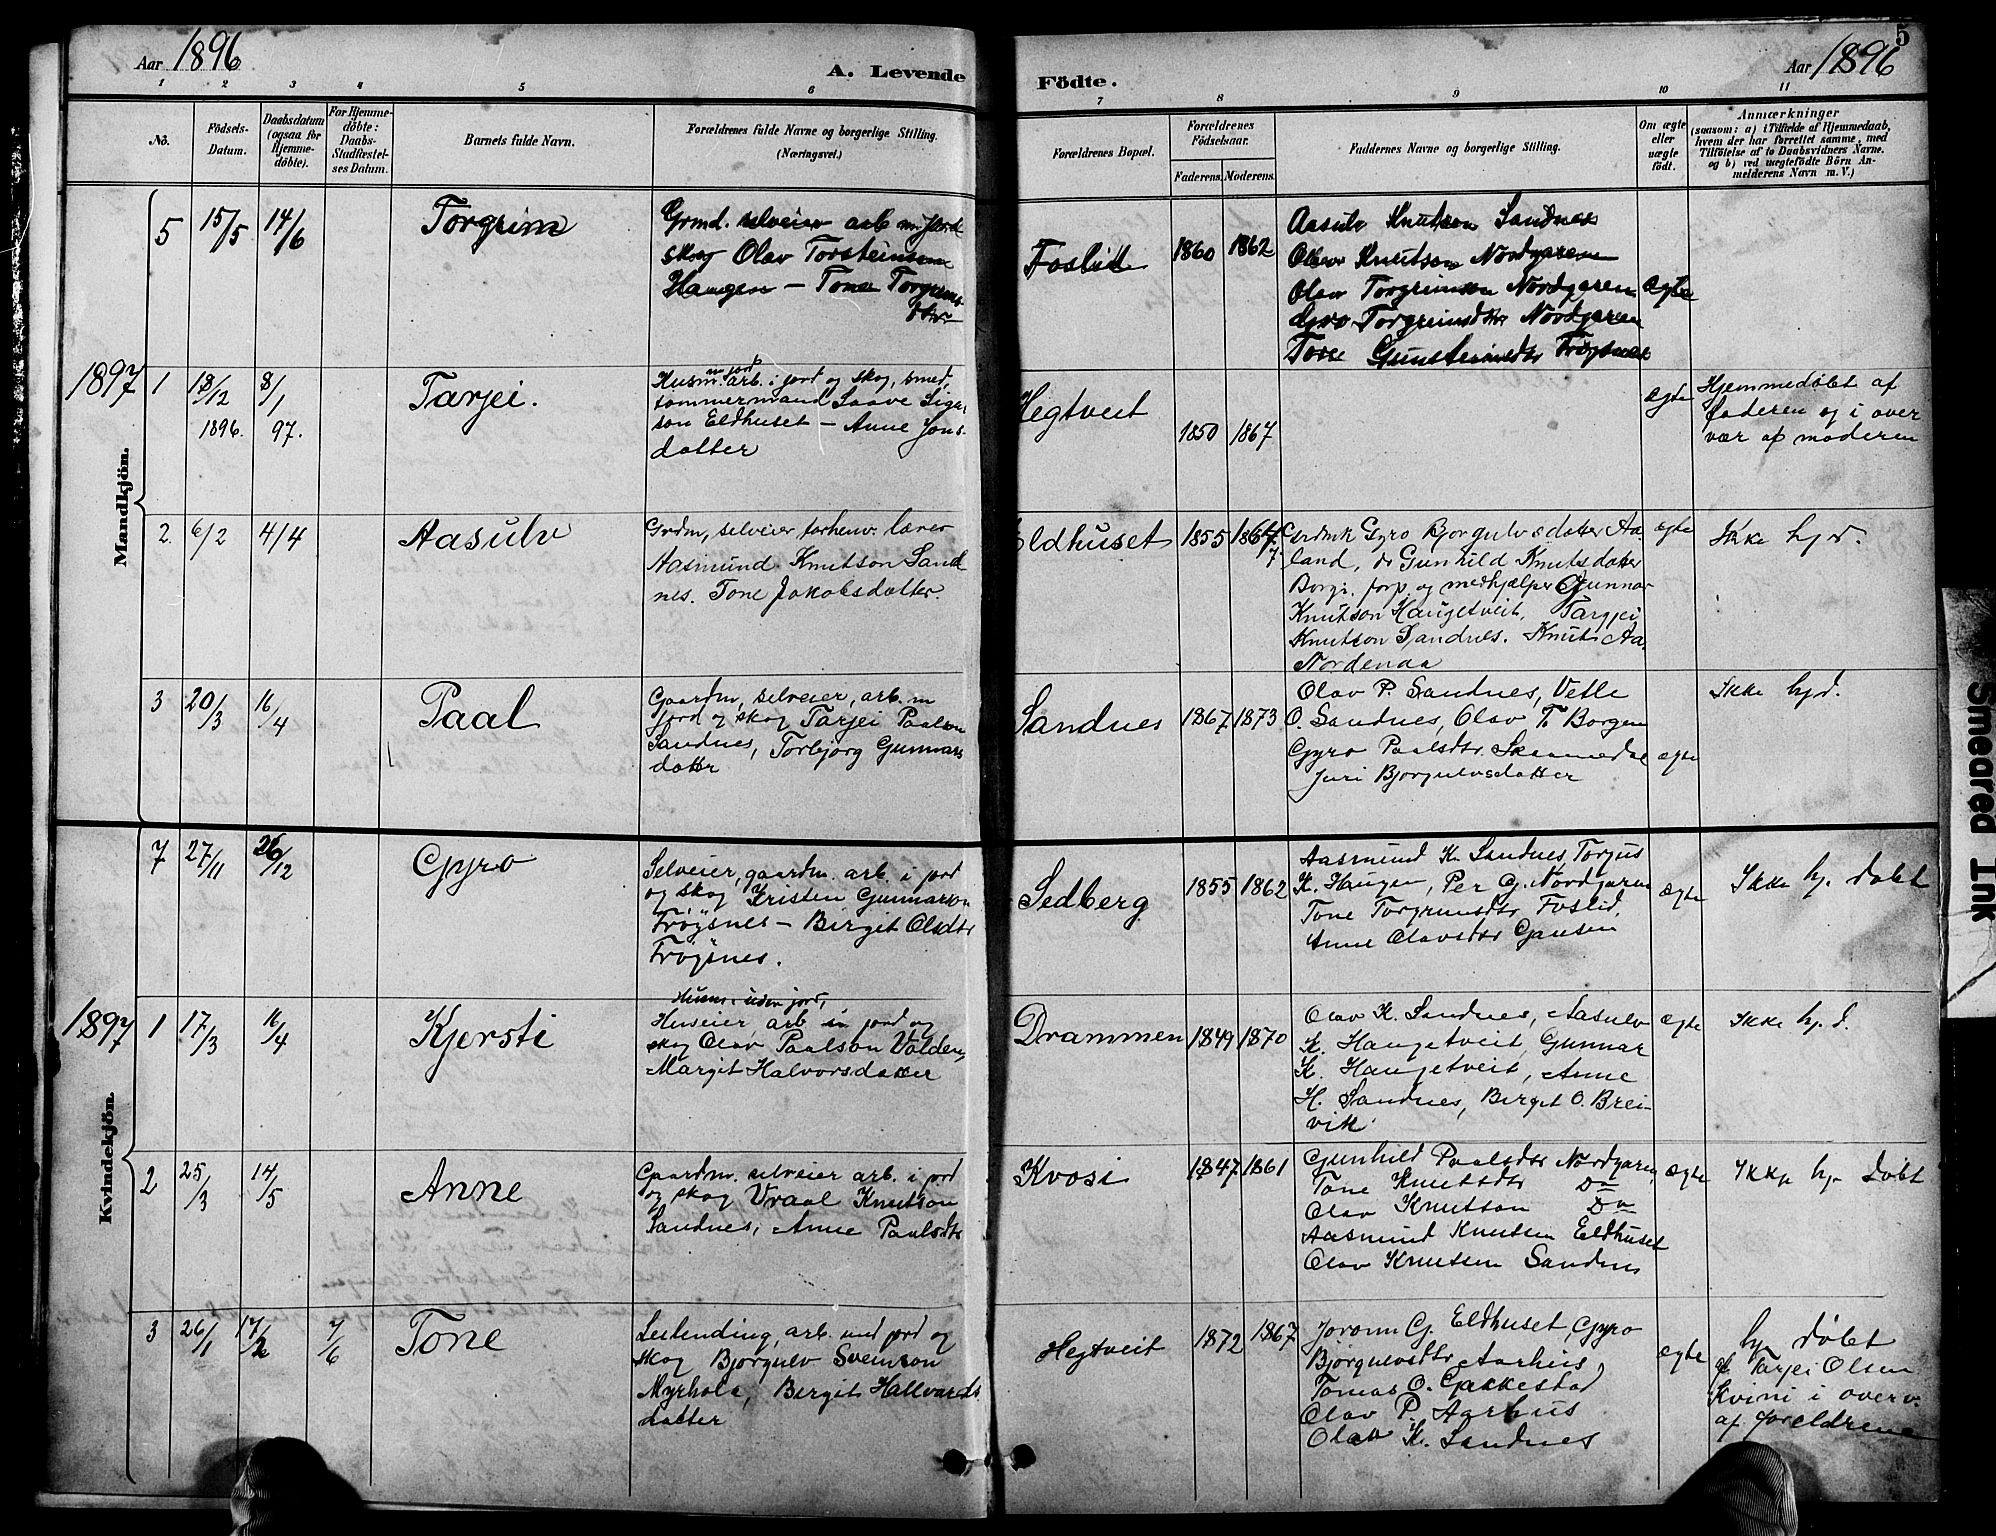 Aar 1896
A. Levende
Födte.
Aar 1896
5
1 2 3 4 5 6 7 8 9 10 11
No.
Födsels-
Datum.
Daabsdatum
(ogsaa for
Hjemme-
döbte).
For Hjemme-
döbte:
Daabs-
Stadfæstel-
ses Datum.
Barnets fulde Navn.
Forældrenes fulde Navne og borgerlige Stilling.
(Næringsvei.)
Forældrenes Bopæl.
Forældrenes
Födselsaar.
Faderens. Moderens.
Faddernes Navne og borgerlige Stilling.
Om ægte
eller
uægte
födt.
Anmærkninger
(saasom: a) i Tilfælde af Hjemmedaab,
hvem der har forrettet samme, med
Tilföielse af to Daabsvidners Navne.
og b) ved uægtefödte Börn An-
melderens Navn m. V.)
Mandkjön.
5 15/5 14/6 Torgrim
Grmd. selveier arb m. jord
skog Olav Torsteinsen
Haugen – Tone Torgrims-
dtr
Foslid 1860 1862
Aasulv Knutsen Sandnes
Olav Knutson Nordgaren
Olav Torgrimson Nordgaren
Gyro Torgreimsdtr Nordgaren
Tone Gunsteinsdtr Tröysnes
ægte
1897
1 18/12 1896. 8/1 97. Tarjei.
m jord
Husm. arb. i jord og skog, smed,
tømmermand Saave Sigu-
son Eldhuset – Anne Jons-
datter
Hegtveit 1850 1867
ægte
Hjemmedøbt af
faderen og i over
vær af moderen
2 6/2 4/4 Aasulv
Grdm, selveier, forhenv. lærer
Aasmund Knutson Sand
nes. Tone Jakobsdatter.
Eldhuset 1855 1867
7
Grdmk Gyro Bjorgulvsdatter Aa-
land, do Gunhild Knutsdatter
Borgi. forp. og medhjælper Gunnar
Knutson Haugetveit, Targjei
Knutson Sandnes. Knut Aa.
Nordenaa
ægte
Ikke hj d.
3 20/3 16/4 Paal
Gaardm, selveier, arb. m
jord og skog Tarjei Paalson
Sandnes, Torbjörg Gunnars
datter
Sandnes 1867 1873
Olav P. Sandnes, Vetle
O. Sandnes, Olav T. Borgen
Gyro Paalsdtr. Skaamedal
Juri Bjorgulvsdatter
ægte
Ikke hj d.
Kvindekjön.
7 27/11 26/12 Gyro
Selveier, gaardm. arb. i jord
og skog Kristen Gunnarson
Tröysnes – Birgit Olsdtr
Tröysnes.
Sedberg 1855 1862
Aasmund K. Sandnes, Torjus
K. Haugen, Per G. Nordgaren
Tone Torgrimsdtr Foslid,
Anne Olavsdtr Gausen
ægte
Ikke hj. døbt
1897
1 17/3 16/4 Kjersti
Husm. uden jord,
Huseier, arb in jord og
skog Olav Paalson Valden,
Margit Halvorsdatter
Drammen 1849 1870
Olav K. Sandnes, Aasulv
K. Haugetveit, Gunnar
K. Haugetveit, Anne
H. Sandnes, Birgit O. Brei-
vik.
ægte
Ikke hj. d.
2 25/3 14/5 Anne
Gaardm. selveier arb. i jord
og skog Vraal Knutson
Sandnes, Anne Paalsdtr
Kvosi 1847 1861
Gunhild Paalsdtr Nordgaren,
Tone Knutsdtr Do
Olav Knutson Do
Aasmund Knutsen Eldhuset
Olav Knutsen Sandnes
ægte
Ikke hj. døbt
3 26/1 17/2 7/6 Tone
Leilending, arb. med jord og
skog Bjorgulv Sveinson
Myrhola, Birgit Hallvards
datter
Hegtveit 1872 1867
Joronn G. Eldhuset, Gyro
Björgulvsdtr Aarhus,
Tomas O. Gakkestad
Olav P. Aarhus
Olav K. Sandnes
ægte
hj. døbt
af Tarjei Olsen
Kvini i overv.
af foreldrene
Smeared Ink